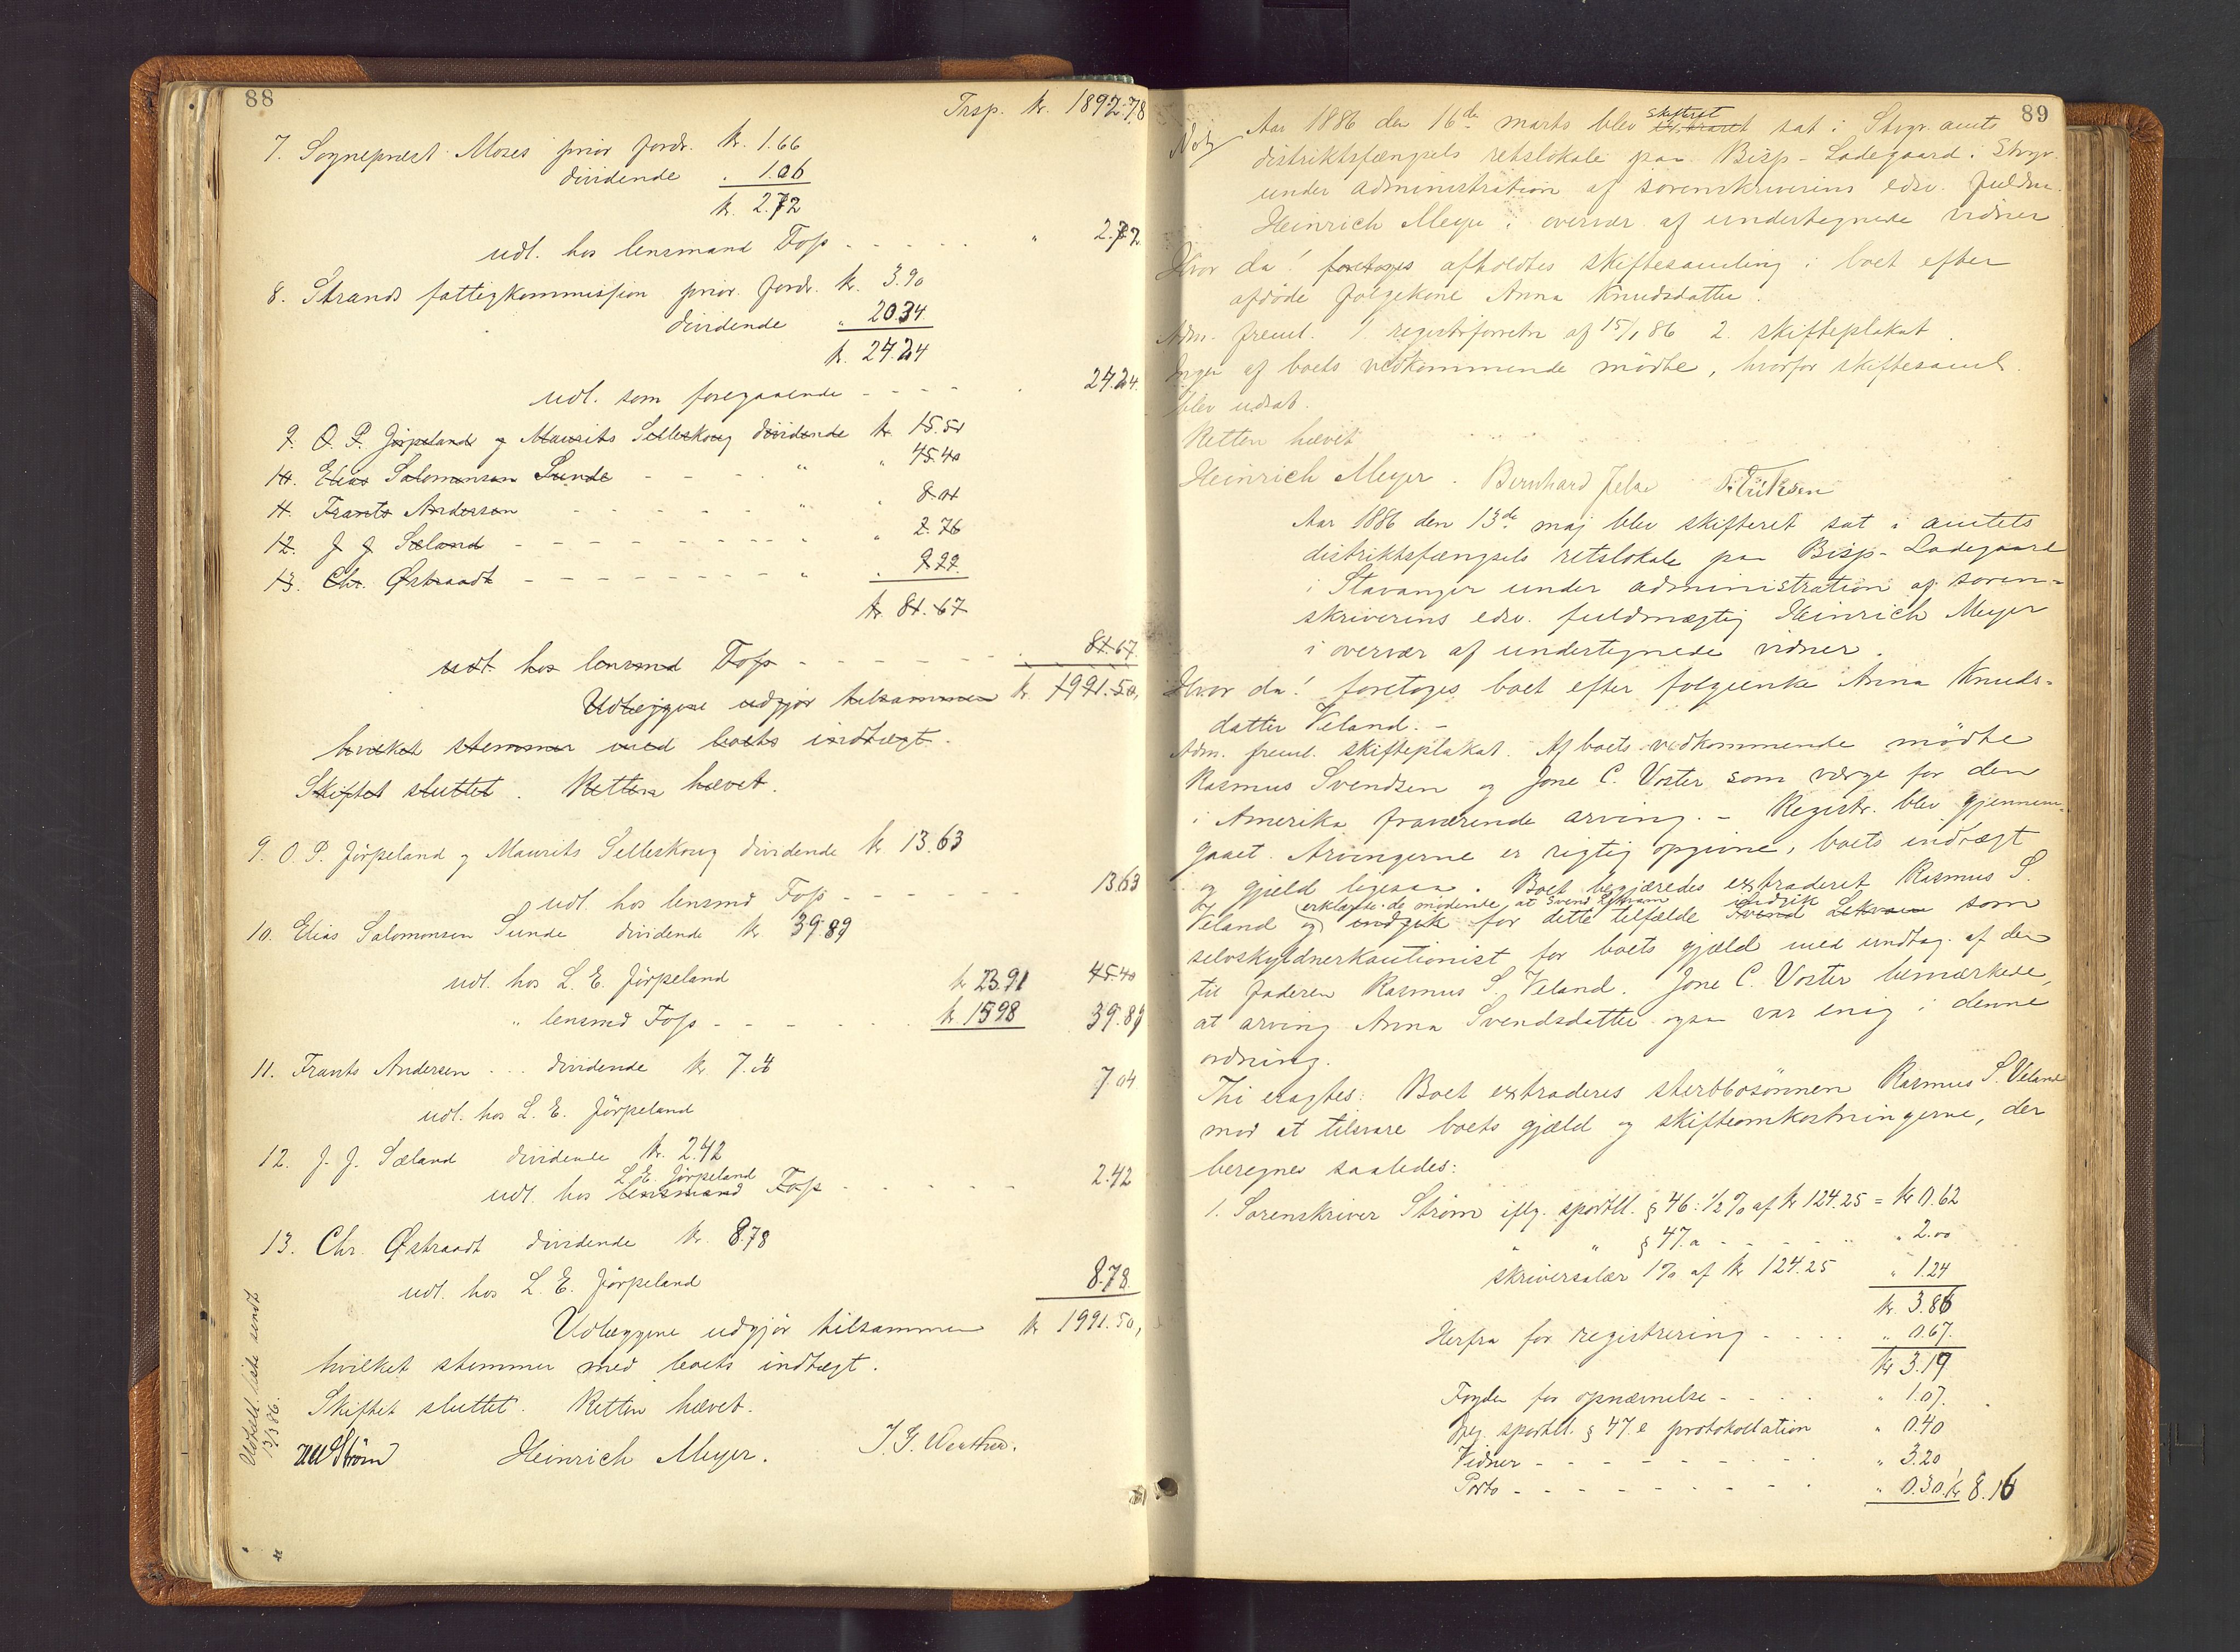 88
Trsp. kr. 1892.78
7. Sognepræst Moses prior fordr. kr. 1.66
dividende " 1.06
kr. 2.72
udl. hos lensmand Foss - - - - - " 2.72
8. Strands fattigkommission prior. fordr. kr. 3.90
dividende " 20.34
kr. 24.24
udl. som foregaaende - - - " 24.24
9. O. P. Jörpeland og Maurits Selleskoug dividende kr 15.51
10. Elias Salomonsen Sunde - - - " " 45.40
11. Frants Andersen - - - - - " " 8.01
12. J. J. Sæland - - - - - - - " " 2.76
13. Chr. Østraadt - - - - - - - " " 9.99
kr. 81.67
udl. hos lensmd Foss - - - - - - 81.67
Udlæggene udgjör tilsammen kr 1991.50,
hvilket stemmer med boets indtægt.
Skiftet sluttet. Retten hævet.
9. O. P. Jörpeland og Maurits Selleskoug dividende kr 13.63
udl. hos lensmd Foss - - - - - 13.63
10. Elias Salomonsen Sunde dividende kr 39.89
udl. hos L. E. Jörpeland kr 23.91 45.40
" lensmd Foss - - - - - kr. 15.98 39.89
11. Frants Andersen ... dividende kr 7.04
7.04
udl. hos L. E. Jörpeland
12. J. J. Sæland dividende kr. 2.42
L. E. Jörpeland
udl. hos lensmand Foss - - - - - - 2.42
13. Chr. Østraadt dividende kr. 8.78
udl. hos L. E. Jörpeland 8.78
Udlæggene udgjör tilsammen kr 1991.50,
hvilket stemmer med boets indtægt.
Skiftet sluttet. Retten hævet.
Strøm Heinrich Meyer.
Udbetl. liste sendt
13/3 86.
89
Not
Aar 1886 den 16de marts blev skifteret sat i Stvgr. amts
distriktsfængsels retslokale paa Bisp-Ladegaard i Stvgr.
under administration af sorenskriverens edsv. fuldm.
Heinrich Meyer i overvær af undertegnede vidner
Hvor da! foretoges afholdtes skiftesamling i boet efter
afdöde folgekone Anna Knudsdatter.
Adm. freml. 1. registrforretn af 15/1 86 2. skifteplakat.
Ingen af boets vedkommende mödte, hvorfor skiftesaml.
blev udsat.
Retten hævet
Heinrich Meyer. Bernhard
Aar 1886 den 13de maj blev skifteret sat i amtets
distriktsfængsels retslokale paa Bisp-Ladegaard
i Stavanger under administration af soren=
skriverens edsv. fuldmægtig Heinrich Meyer
i overvær af undertegnede vidner.
Hvor da! foretoges boet efter folgeenke Anna Knuds=
datter Veland. -
Adm. freml. skifteplakat. Af boets vedkommende mödte
Rasmus Svendsen og Jone C. Voster som værge for den
i Amerika fraværende arving. - Registr. blev gjennem=
gaaet. Arvingerne er rigtig opgivne, boets indtægt
og gjæld ligesaa. Boet begjæredes extraderet Rasmus S.
erklærede de mödende at Svend indgik
Veland og indgik for dette tilfælde Svend som
selvskyldnerkautionist for boets gjæld med undtag. af den
til faderen Rasmus S. Veland. Jone C. Voster bemærkede,
at arving Anna Svendsdatter ogsaa var enig i denne
ordning.
Thi eragtes: Boet extraderes sterbbosönnen Rasmus S. Veland
mod at tilsvare boets gjæld og skifteomkostningerne, der
beregnes saaledes:
1. Sorenskriver Ström iflg. sportll. § 46: 1/2 % af kr 124.25 = kr 0.62
" " § 47.a - - - - - " 2.00
skriversalær 1 % af kr 124.25 " 1.24
kr. 3.86
Herfra for registrering - . . . " 0.67.
kr 3.19
Fogden for opnævnelse - - - " 1.07.
Jfg. sportll. § 47. e protokollation " 0.40
Vidner - - - - - - - - " 3.20
Porto - - - - - - - - " 0.30. kr 8.16